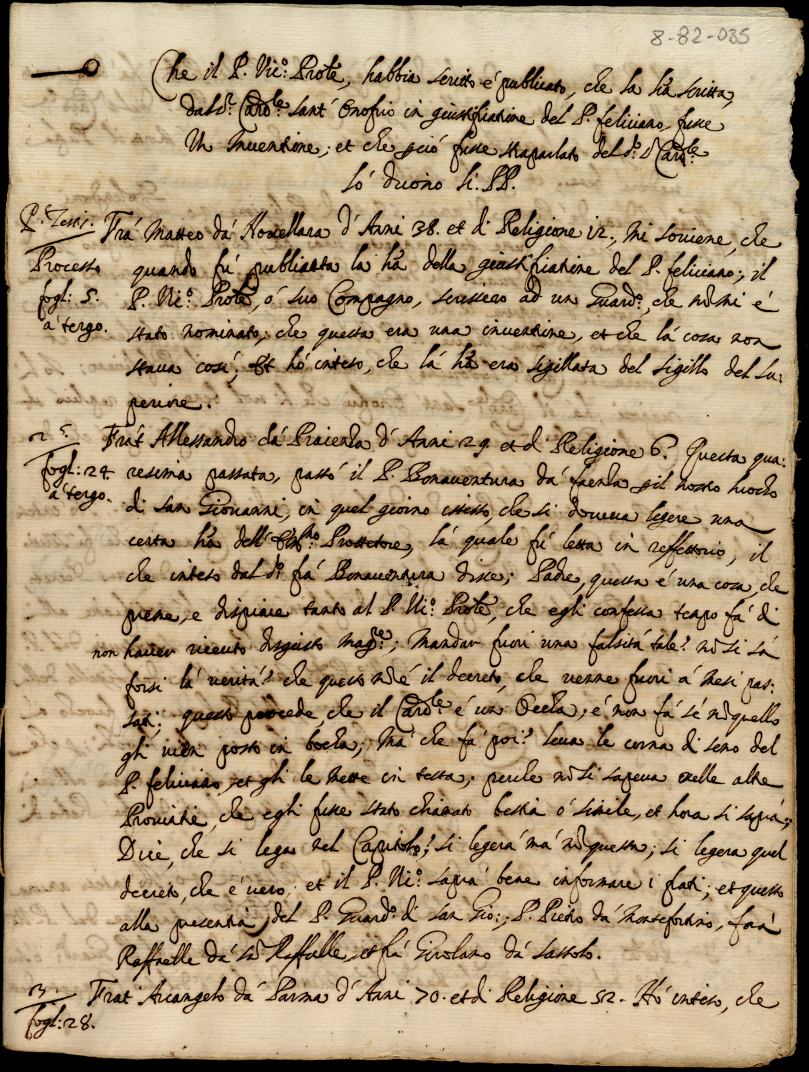 8-82-035
Che il P. Vic.º Prôle, habbia scritto e publicato, che la lrã scritta,
dal S.r Card.le Sant' Onofrio in giustificatione del P. feliciano, fusse
Un Inventione; et che p ciò fusse straparlato del d.º S.r Card.le
Lò dicono li. PP.
P.s Testis. Frà Matteo dà Novellara d'Anni 38. et di Religione 12., Mi soviene, che
Processo quando fù publicata la lrã della giustificatione del P. feliciano; il
fogl: 5. P. Vic.º Prôle, ò suo Compagno, scrissero ad un Guard.º, che nõ mi è
à tergo. stato nominato, che questa era una inventione, et che la cosa non
stava così; Et hò inteso, che la lrã era sigillata del sigillo del Su:
periore.
2.s Frat' Allessandro dà Piacenza d'Anni 29. et di Religione 6. Questa qua:
fogl: 24. resima passata, passò il P. Bonaventura dà faenza p il nostro luocho
à tergo. di san Giovanni, in quel giorno istesso, che si doveva legere una
certa lrã dell' Protettore, la quale fù letta in reffettorio, il
che inteso dal d.º frà Bonaventura disse; Padre, questa è una cosa, che
preme, e dispiace tanto al P. Vic.º Prôle, che egli confessa tempo fà di
non haver ricevuto disgusto mag.re; Mandar fuori una falsità tale? nõ si sà
forsi là verità? che questo nõ è il decreto, che venne fuori à mesi pas:
sati; questo procede, che il Card.le è un Becha, e non fà se nõ quello
gli vien posto in bocha; Mà che fà poi? Leva le corna di seno del
P. feliciano, et gli le mette in testa; perche nõ si sapeva nelle altre
Provincie, che egli fusse stato chiamato bestia ò simile, et hora si saprà;
Dice, che si lega nel Capitolo! si legerà mà nõ questa; si legera quel
decreto, che è vero; et il P. Vic.º saprà bene informare i frati; et questo
alla presentia, del P. Guard.º di san Gio:; P. Pietro dà Montefortino, frà
Raffaelle dà Sã Raffaelle, et frà Girolamo dà Sassolo.
3. Frat' Arcangelo dà Parma d'Anni 70. et di Religione 52. Hò inteso, che
fogl: 28.